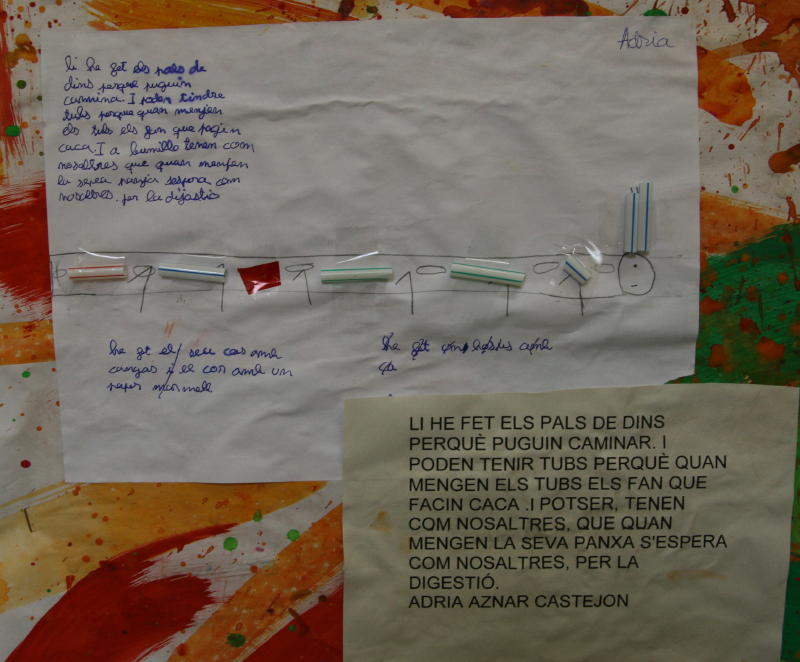 Adria
li he get els pals de
dins perque puguin
caminna. I poden tindre
tubs perque quan menjen
els tubs els fan que fagin
caca. I a lumillo tenem com
nosaltres que quan menjen
la seva panxa sespera com
nosaltres. per la dijastio
he get el seu cos amb
canyas y el cor amb un
paper
he get
LI HE FET ELS PALS DE DINS
PERQUÈ PUGUIN CAMINAR. I
PODEN TENIR TUBS PERQUÈ QUAN
MENGEN ELS TUBS ELS FAN QUE
FACIN CACA .I POTSER, TENEN
COM NOSALTRES, QUE QUAN
MENGEN LA SEVA PANXA S'ESPERA
COM NOSALTRES, PER LA
DIGESTIÓ.
ADRIA AZNAR CASTEJON